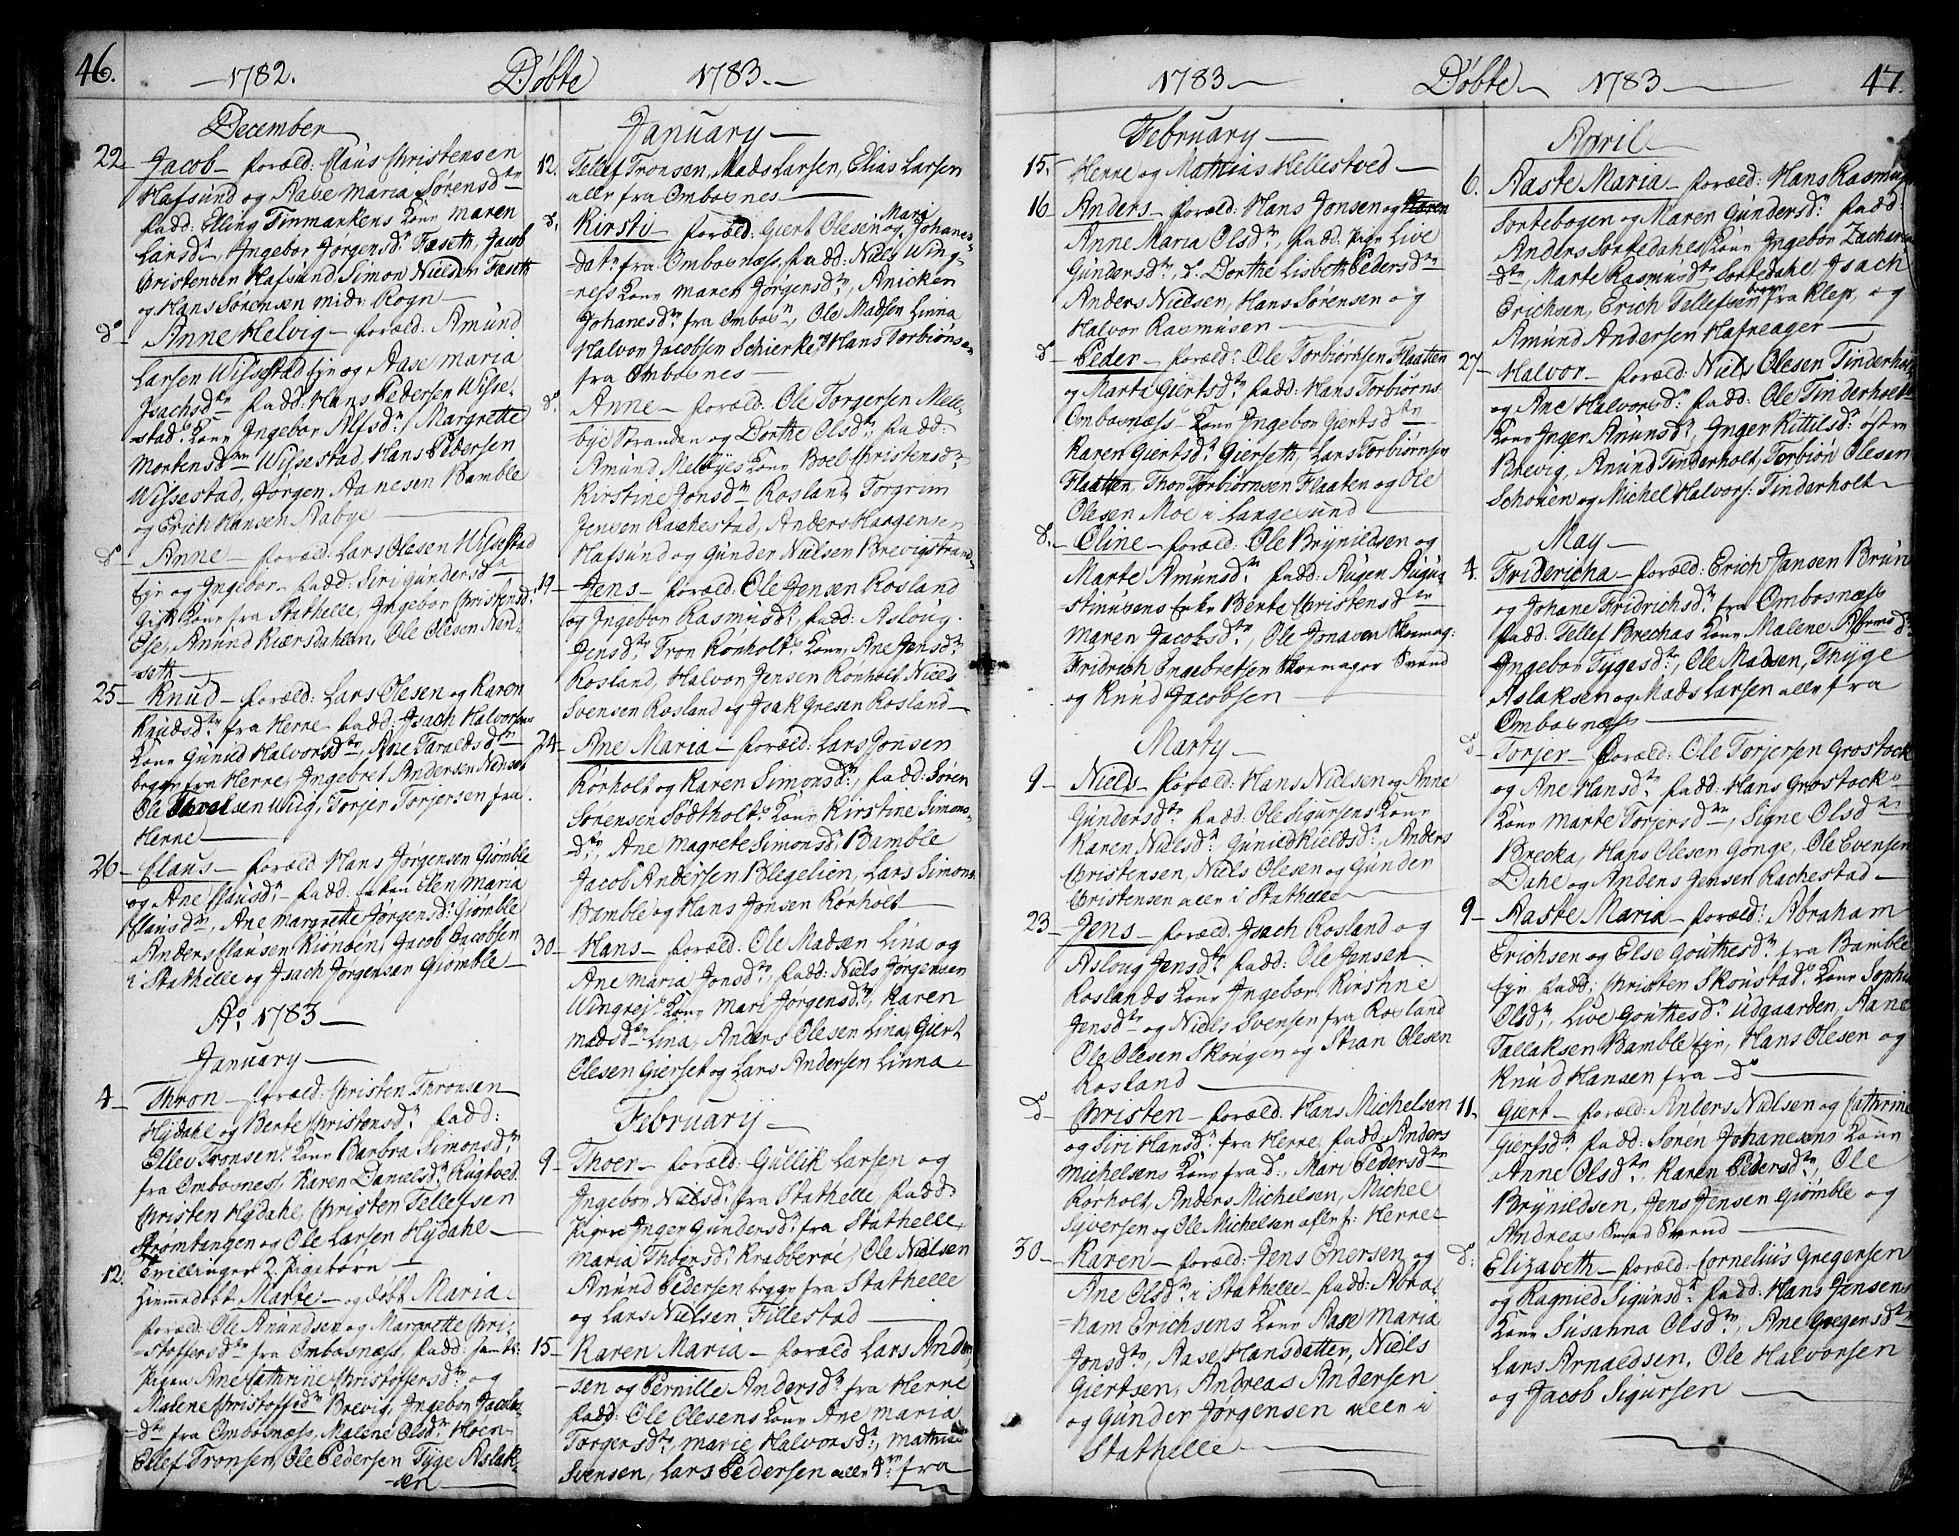 46.
1782. Döbte 1783.
December
22 Jacob foræld: Claus Christensen
Hafsund og Aase Maria Sørensdtr
fadd: Elling Finmarkens Kone Maren
Larsdr, Ingebor Jørgensdr Fæseth, Jacob
Christensen Hafsund, Simon Nielsen Fæseth
og Hans Sørensen midr Rogn
do Anne Helvig foræld: Amund
Larsen Wissestad Eje og Aase Maria
Isachsdtr fadd: Hans Pedersen Wisse-
stads Kone Ingebor Alfsdr, Margrette
Mortensdtr Wissestad, Hans Pedersen
Wissestad, Jørgen Aanesen Bamble
og Erich Hansen Aabye
do Anne foræld: Lars Olesen Wissestad
Eje og Ingebor fadd: Siri Gundersdtr
Gift Kone fra Stathelle, Ingebor Christensdr
Ese, Anund Kiærsdahlen, Ole Olesen
seth
25 Knud foræld: Lars Olesen og Karen
Knudsdtr fra Herre fadd: Isach Halvorsens
Kone Gunild Halvorsdtr, Ane Taraldsdtr
begge fra Herre, Ingebret Andersen
Ole Wiig, Torjer Torjersen fra
Herre
26 Claus foræld: Hans Jørgensen Giømble
og Ane Clausdr fadd: Elen Maria
Clausdtr, Ane Margrette Jørgensdr Giømble
Anders Clausen Kiønøen, Jacob Jacobsen
i Stathelle og Isach Jørgensen Giømble
Ao 1783
January
4 Thron foræld: Christen Thronsen
Hydahl og Berte Christensdr fadd:
Ellev Tronsens Kone Barbra Simonsdr
fra Ombosnes, Karen Danielsdr Rugtved
Christen Hydahl, Christen Tellefsen
Strømtangen og Ole Larsen Hydahl
12. Tvillinger 2 Pigebørn
Hiemmedøbt Marte og døbt Maria
foræld: Ole Anundsen og Margrette Chri-
stoffersdtr fra Ombosnæss, fadd:
Pigen Ane Cathrine Christoffersdtr og
Malene Christoffersdtr Brevig, Ingebor Jacobs-
dtr fra Ombosnæss, Malene Olsdr Høen
Ellef Tronsen, Ole Pedersen Tyge Aslak-
sen
January
12. Tellef Tronsen, Mads Larsen, Elias Larsen
alle fra Ombosnes
d. Kirsti foræld: Giert Olesen og Mari Johanes-
datr fra Ombosnæss, fadd: Niels Wing-
ress Kone Maren Jørgensdr, Anicken
Johanesdtr fra Ombosn, Ole Madsen Linna
Halvor Jacobsen Schierke, Hans Torbiørnsen
fra Ombosnes
d. Anne foræld: Ole Torgersen Mele-
bye Stranden og Dorthe Olsdr, fadd:
Amund Melbyes Kone Boel Christensdr
Kirstine Jonsdtr Rosland Torgrim
Jensen Rackestad, Anders Haagensen
Hafsund og Gunder Nielsen Brevigstrand
19 Jens foræld: Ole Jensen Rosland
og Ingebor Rasmusdr, fadd: Asloug
Jensdr, Tron Rønholts Kone, Ane Jensdr
Rosland, Halvor Jensen Rønholt Niels
Svensen Rosland og Isak Gresen Rosland
24 Ane Maria foræld: Lars Jonsen
Rørholt og Karen Simonsdr, fadd: Søren
Sørensen Sødtholts Kone Kirstine Simons-
dtr, Ane Magrete Simonsdr Bamble
Jacob Andersen Blegelien, Lars Simons:
Bamble og Hans Jonsen Rørholt
30 Hans foræld: Ole Madsen Lina og
Ane Maria Jonsdtr fadd: Niels Jørgensen
Wingrejs Kone Mari Jørgensdr, Karen
Madsdtr Lina, Anders Olesen Lina, Giert
Olesen Gierset og Lars Andersen Linna
February
9 Thoer foræld: Gullik Larsen og
Ingebor Nielsdr fra Stathelle, fadd:
Pigen Inger Gundersdr fra Stathelle,
Maria Thoersdr Krabberøe, Ole Nielsen
Anund Pedersen begge fra Stathelle
og Lars Nielsen Fillestad
15 Karen Maria foræld Lars Ander-
sen og Pernille Andersdr fra Herre
fadd: Ole Olesens Kone Ane Maria
Torgersdtr, Marie Halvorsdr, Mathias
Svensen, Lars Pedersen alle 4re fra
1783 Döbte 1783 47.
February
15. Herre og Mathias Hellestved
16 Anders foræld: Hans Jonsen og Karen
Anne Maria Olsdtr, fadd: Pige Live
Gundersdtr, do Dorthe Lisbeth Pedersdtr
Anders Nielsen, Hans Sørensen og
Halvor Rasmusen
d Peder foræld: Ole Torbiørnsen Flaatten
og Marta Giertsdtr fadd: Hans Torbiørns
Ombosnæss Kone Ingebor Giertsdtr
Karen Giertsdr Gierseth, Lars Torbiørnsen
Flaatten, Thor Torbiørnsen Flaaten og Ole
Olesen Moe i Langesund
d. Eline foræld: Ole Brynildsen og
Marte Amunsdtr fadd: Augen Augu-
stinusens Enke Berte Christensdtr
Maren Jacobsdtr, Ole Jonasen Skomag:
Fridrich Engebretsen Skomager Svend
og Knud Jacobsen
Marty
9 Niels foræld: Hans Nielsen og Anne
Gundersdtr fadd: Ole Sigursens Kone
Karen Nielsdr, Gunild Kieldsdr, Anders
Christensen, Niels Olesen og Gunder
Christensen alle i Stathelle
23 Jens foræld: Isach Rosland og
Asloug Jensdtr fadd: Ole Jensen
Roslands Kone Ingebor, Kirstine
Jensdtr og Niels Svensen fra Rosland
Ole Olesen Skougen og Stian Olesen
Rosland
d Christen foræld: Hans Michelsen
og Siri Hansdr fra Herre, fadd: Anders
Michelsens Kone fra do, Mari Pedersdtr
Rørholt, Anders Michelsen, Michel
Syversen og Ole Michelsen alle f: Herre
30 Karen foræld: Jens Enersen og
Ane Olsdtr i Stathelle fadd: Abra-
ham Erichsens Kone Aase Maria
Jonsdtr, Aase Hansdatter, Niels
Giertsen, Andreas Andersen
og Gunder Jørgensen alle i
Stathelle
April
6. Aaste Maria foræld: Hans Rasmus
Sortebogen og Maren Gundersdr fadd:
Anders Sortedahls Kone Ingebor Zacharias
dtr, Marte Rasmusdtr Sortedahl Isach
Erichsen, Erich Tellefsen begge fra Klep, og
Amund Andersen Hafreager
27 Halvor foræld: Niels Olesen Tinderholt
og Ane Halvorsdr fadd: Ole Tinderholts
Kone Inger Anunsdr, Inger Kittilsdr østre
Brevig, Anund Tinderholt, Torbiøn Olesen
Schouen og Michel Halvors: Tinderholt
May
4. Fridericha foræld: Erich Jansen Brun
og Johane Fridrichsdr fra Ombosnæss
fadd: Tellef Brechas Kone Malene
Ingebor Tygesdtr, Ole Madsen, Thyge
Aslaksen og Mads Larsen alle fra
Ombosnæss
d Torjer foræld: Ole Torjersen Grostock
og Ane Hansdtr fadd: Hans Grostocks
Kone Marte Torjersdtr, Signe Olsdtr
Brecka, Hans Olesen Gonge, Ole Evensen
Dahl og Anders Jensen Rachestad
9 Aaste Maria foræld: Abraham
Erichsen og Else Gouthesdr fra Bamble
Eje fadd: Christen Skoustads Kone Sophie
Olsdtr, Live Gouthesdr Udgaarden, Aane
Tallaksen Bamble Eje, Hans Olesen og
Knud Hansen fra do
11. Giert foræld: Anders Nielsen og Cathrine
Giertsdtr fadd: Søren Johanesens Kone
Anne Olsdtr, Karen Pedersdtr, Ole
Brynildsen, Jens Jensen Giømble og
Andreas Smed Svend
d: Elizabeth foræld: Cornelius Gregersen
og Ragnild Sigursdr fadd: Hans Jensens
Kone Susanna Olsdtr, Ane Gregersdtr
Lars Arnaldsen, Ole Halvorsen
og Jacob Sigursen